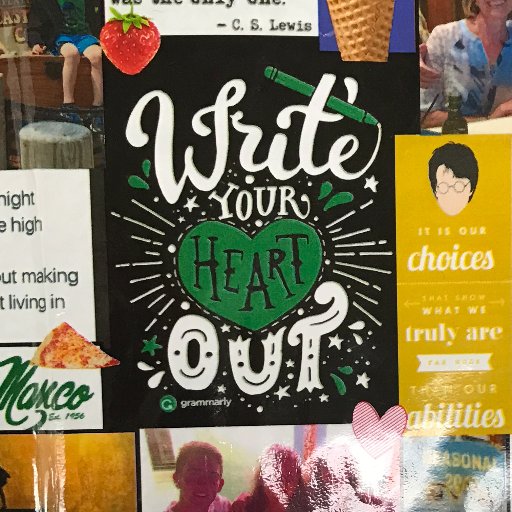 was the only one.
– C. S. Lewis
Write
YOUR
HEART
OUT
grammarly
night
e high
out making
t living in
Manco
Est. 1956
IT IS OUR
choices
THAT SHOW
WHAT WE
truly are
FAR MORE
THAN OUR
abilities